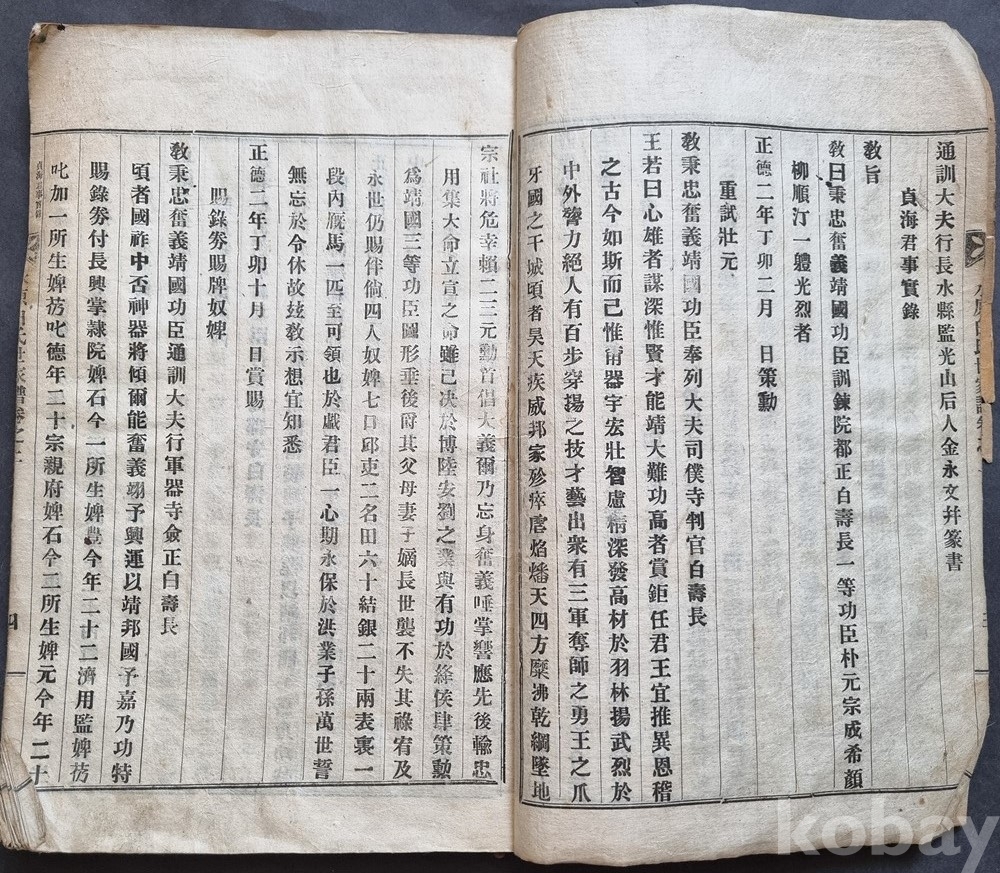 通訓大夫行長水縣監光山后人金永文幷篆書
貞海君事實錄
敎旨
敎曰秉忠奮義靖國功臣訓鍊院都正白壽長一等功臣朴元宗成希顔
柳順汀一體光烈者
正德二年丁卯二月 日策勳
重試壯元
敎秉忠奮義靖國功臣奉列大夫司僕寺判官白壽長
王若曰心雄者謀深惟賢才能靖大難功高者賞鉅任君王宜推異恩稽
之古今如斯而已惟爾器宇宏壯智慮精深發高材於羽林揚武烈於
中外膂力絕人有百步穿揚之技才藝出衆有三軍奪師之勇王之爪
牙國之干城頃者昊天疾威邦家殄瘁虐焰燔天四方糜沸乾綱墜地
宗社將危幸賴二三元勳首倡大義爾乃忘身奮義唾掌響應先後輸忠
用集大命立宣之命雖已决於博陸安劉之業與有功於絳侯肆策勳
爲靖國三等功臣圖形垂後爵其父母妻子嫡長世襲不失其祿宥及
永世仍賜伴倘四人奴婢七口邱吏二名田六十結銀二十兩表裏一
段內廐馬一匹至可領也於戱君臣一心期永保於洪業子孫萬世誓
無忘於令休故玆敎示想宜知悉
正德二年丁卯十月 日賞賜
賜錄劵賜牌奴婢
敎秉忠奮義靖國功臣通訓大夫行軍器寺僉正白壽長
頃者國祚中否神器將傾爾能奮義翊予興運以靖邦國予嘉乃功特
賜錄劵付長興掌隷院婢石今一所生婢豊今年二十二濟用監婢芿
叱加一所生婢芿叱德年二十宗親府婢石今二所生婢元今年二十
貞海君事實錄
四
kobay